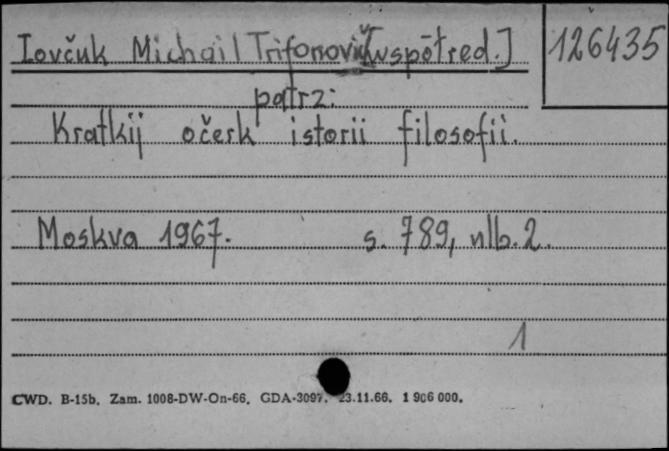 Iovčuk Michail Trifonovič [współred.]
126435
patrz:
Kratkij očerk istorii filosofii.
Moskva 1967. s. 789, nlb. 2.
1
CWD. B-15b. Zam. 1008-DW-On-66. GDA-3097. 23.11.66. 1 906 000.